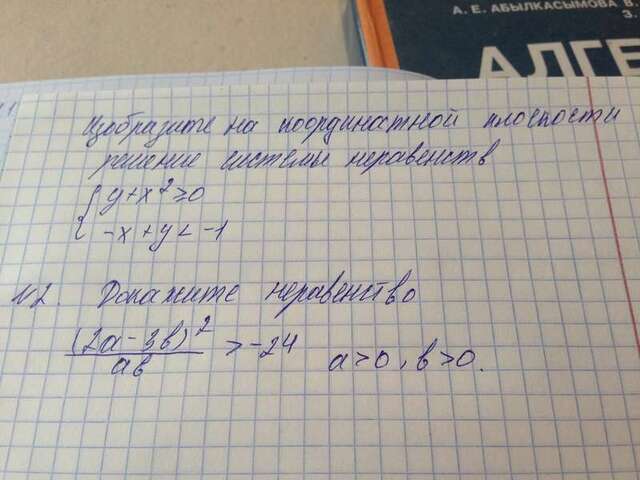 А. Е. АБЫЛКАСЫМОВА В.
З.
АЛГЕ
Изобразите на координатной плоскости
решение системы неравенств
{ y + x² ≥ 0
-x + y < -1
N2. Докажите неравенство
(2a - 3b)² / ab > -24 a > 0, b > 0.